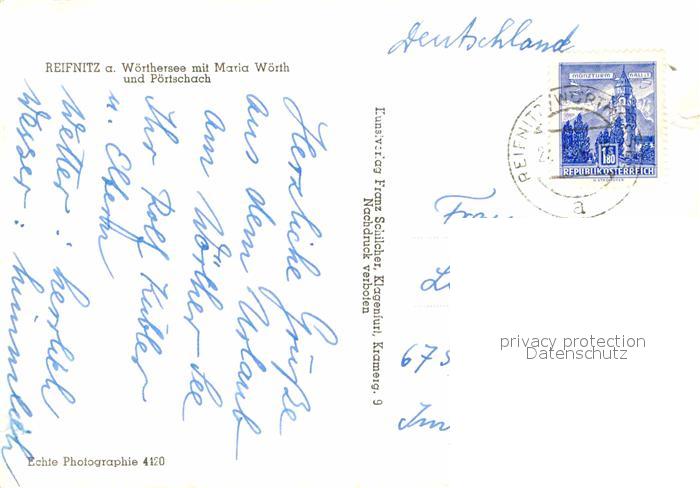 REIFNITZ a. Wörthersee mit Maria Wörth
und Pörtschach
Herzliche Grüße
aus dem Urlaub
am Wörther-See
Ihr Rolf Kübler
u. Eltern
Wetter: herrlich
Wasser: himmlisch
Echte Photographie 4120
Kunstverlag Franz Schilcher, Klagenfurt, Kramerg. 9
Nachdruck verboten
Deutschland
MÜNZTURM HALL i. T.
1.80
REPUBLIK ÖSTERREICH
REIFNITZ (WÖRTH
a
67
Im
privacy protection
Datenschutz